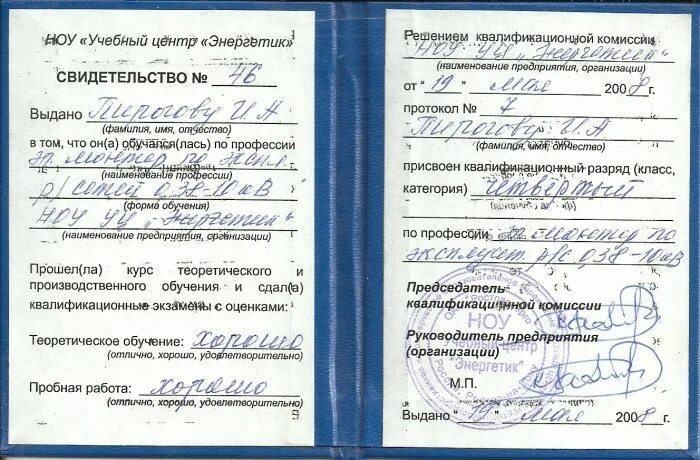 НОУ «Учебный центр «Энергетик»
СВИДЕТЕЛЬСТВО № 46
Выдано Пирогову И.А
(фамилия, имя, отчество)
в том, что он(а) обучался(лась) по профессии
эл. монтер по экспл.
(наименование профессии)
р/сетей 0,38-10 кВ
(форма обучения)
НОУ УЦ „Энергетик"
(наименование предприятия, организации)
Прошел(ла) курс теоретического и
производственного обучения и сдал(а)
квалификационные экзамены с оценками:
Теоретическое обучение: хорошо
(отлично, хорошо, удовлетворительно)
Пробная работа: хорошо
(отлично, хорошо, удовлетворительно)
Решением квалификационной комиссии
НОУ УЦ „Энергетик"
(наименование предприятия, организации)
от " 19 " мая 2008г.
протокол № 7
Пирогову И.А
(фамилия, имя, отчество)
присвоен квалификационный разряд (класс,
категория) четвертый
по профессии эл. монтер по
эксплуат. р/с 0,38-10 кВ
Председатель
квалификационной комиссии
Руководитель предприятия
(организации)
НОУ
Учебный центр
"Энергетик"
М.П.
Выдано " 19 " мая 2008г.